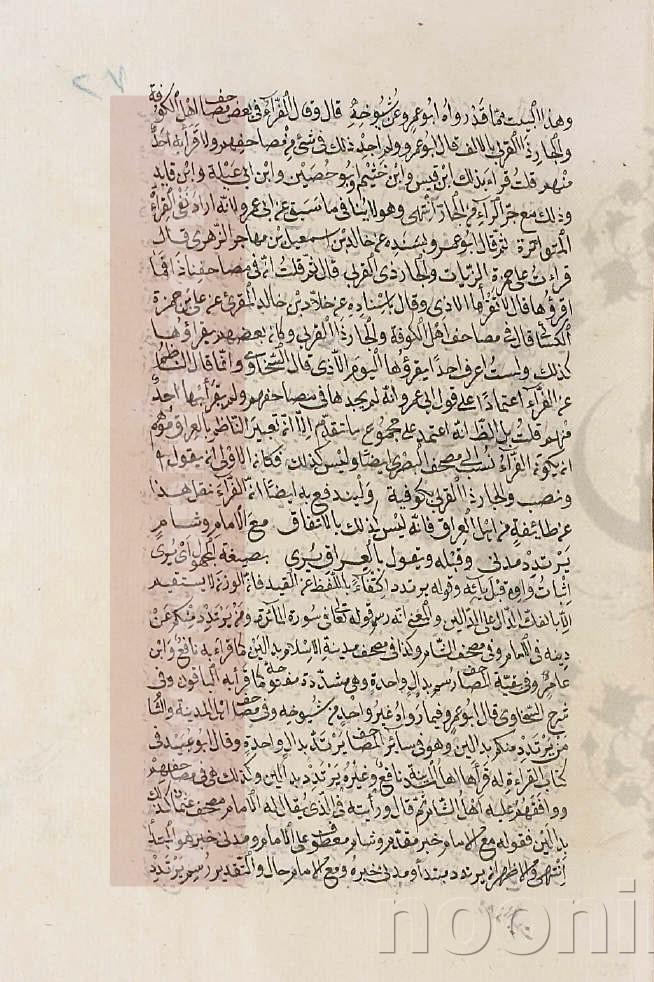 وهذا البيت مما قد رواه ابو عمرو عن شيوخه قال وقال الفرّاء في بعض مصاحف اهل الكوفة
والجار ذا القربى بالالف قال ابو عمرو ولم اجد ذلك في شيء من مصاحفهم ولا قرأ به احد
منهم قلت قراءة بذلك ابن قيس وابن خثيم وابو حصين وابن ابي عبلة وابن قايد
وذلك مع جرّ الراء في الجار انتهى وهو لا ينافي ما سبق عن ابي عمرو لانه اراد نفي القراءة
المتواترة ثم قال ابو عمرو بسنده عن خالد بن اسمعيل بن مهاجر الزهري قال
قرأت على حمزة الزيات والجار ذي القربى قال ثم قلت انه في مصاحفنا ذا افما
اقرؤها قال لا تقرأها الا ذي وقال باسناده عن خلاد بن خالد المقرئ عن علي بن حمزة
الكسائي قال في مصاحف اهل الكوفة والجار ذا القربى وكان بعضهم يقرؤها
كذلك ولست اعرف احدا يقرؤها اليوم الا ذي قال السخاوي وانما قال الناظم
عن الفرّاء اعتمادا على قول ابي عمرو انه لم يجدها في مصاحفهم ولم يقرأ بها احد
منهم قلت بل الظ انه اعتمد على مجموع ما تقدم الا ان تعبير الناظم بالعراق موهم
ان يكون الفرّاء نسب الى مصحف البصري ايضا وليس كذلك فكان الاولى ان يقول
ونصب والجار ذا القربى بكوفية وليندفع به ايضا ان الفرّاء نقل هذا
عن طايفة من اهل العراق فانه ليس كذلك بالاتفاق مع الامام وشام
يرتدد مدني وقبله ويقول بالعراق يرى بصيغة المجهول اي يرى
اثبات واوه قبل يائه وقوله يرتدد اكتفاء باللفظ عن القيد فان الوزن لا يستقيم
الا بالفك الدال على الدالين والمعنى انه رسم قوله تعالى في سورة المائدة ومن يرتدد منكم عن
دينه في الامام وفي مصحف الشام وكذا في مصحف مدينة الاسلام بدالين كما قرأ به نافع وابن
عامر وفي بقية المصاحف رسم بدال واحدة وهي مشدّدة مفتوحة كما قرأ به الباقون وفي
شرح السخاوي قال ابو عمرو فيما رواه غير واحد من شيوخه وفي مصاحف اهل المدينة والشام
من يرتدد منكم بدالين وهو في سائر المصاحف يرتدّ بدال واحدة وقال ابو عبيد في
كتاب القراءة له قرأها اهل المدينة نافع وغيره يرتدد بدالين وكذلك هي في مصاحفهم
ووافقهم عليه اهل الشام ثم قال ورأيته في الذي يقال له الامام مصحف عثمان كذلك
بدالين فقوله مع الامام خبر مقدم وشام معطوف على الامام ومدني خبر هو المبتدأ
انتهى والاظهر ان يرتدد مبتدأ ومدني خبره ومع الامام حال والتقدير رسم يرتدد
noonl